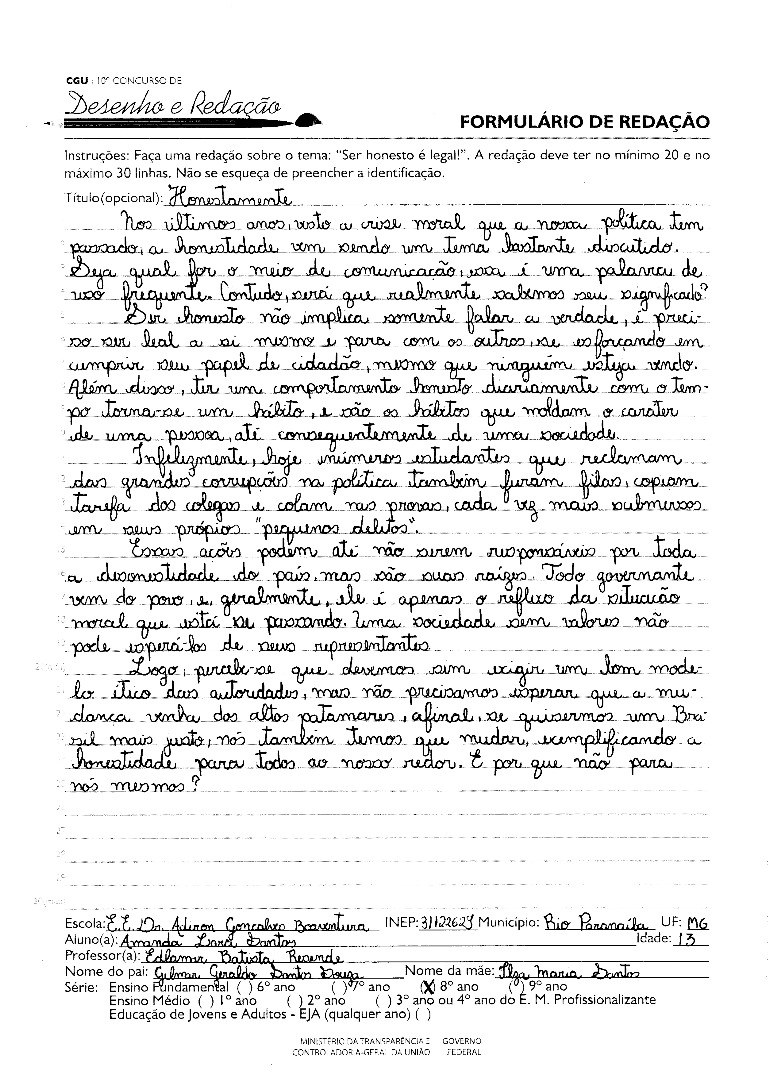 CGU : 10º CONCURSO DE
Desenho e Redação
FORMULÁRIO DE REDAÇÃO
Instruções: Faça uma redação sobre o tema: "Ser honesto é legal!". A redação deve ter no mínimo 20 e no
máximo 30 linhas. Não se esqueça de preencher a identificação.
Título(opcional): Honestamente
Nos últimos anos, visto a crise moral que a nossa política tem
passado, a honestidade vem sendo um tema bastante discutido.
Seja qual for o meio de comunicação, essa é uma palavra de
uso frequente. Contudo, será que realmente sabemos seu significado?
Ser honesto não implica somente falar a verdade, é preci-
so ser leal a si mesmo e para com os outros, se esforçando em
cumprir seu papel de cidadão, mesmo que ninguém esteja vendo.
Além disso, ter um comportamento honesto diariamente com o tem-
po torna-se um hábito, e são os hábitos que moldam o caráter
de uma pessoa, até consequentemente de uma sociedade.
Infelizmente, hoje inúmeros estudantes que reclamam
das grandes corrupções na política também furam filas, copiam
tarefa dos colegas e colam nas provas, cada vez mais submersos
em seus própios "pequenos delitos".
Essas ações podem até não serem responsáveis por toda
a desonestidade do país, mas são suas raízes. Todo governante
vem do povo e, geralmente, ele é apenas o reflexo da situação
moral que está se passando. Uma sociedade sem valores não
pode esperá-los de seus representantes
Logo, percebe-se que devemos sim exigir um bom mode-
lo ético das autoridades, mas não precisamos esperar que a mu-
dança venha dos altos patamares, afinal, se quisermos um Bra-
sil mais justo, nós também temos que mudar, exemplificando a
honestidade para todos ao nosso redor. E por que não para
nós mesmos?
Escola: E.E. Dr. Adiron Gonçalves Boaventura INEP: 31122629 Município: Rio Paranaíba UF: MG
Aluno(a): Amanda Santos Idade: 13
Professor(a): Edlamar Batista Rezende
Nome do pai: Gilmar Geraldo Santos Souza Nome da mãe: Ilza Maria Santos
Série: Ensino Fundamental ( ) 6º ano ( ) 7º ano (X) 8º ano ( ) 9º ano
Ensino Médio ( ) 1º ano ( ) 2º ano ( ) 3º ano ou 4º ano do E. M. Profissionalizante
Educação de Jovens e Adultos - EJA (qualquer ano) ( )
MINISTÉRIO DA TRANSPARÊNCIA E GOVERNO
CONTROLADORIA-GERAL DA UNIÃO FEDERAL